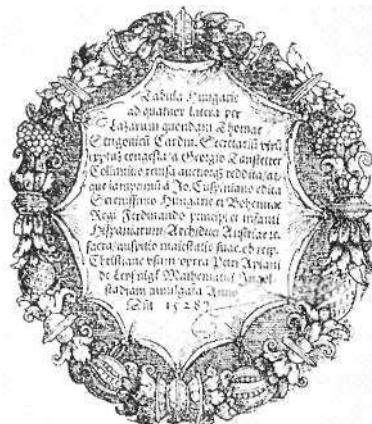 Tabula Hungarie
ad quatuor latera per
Lazarum quendam Thomae
Strigonien̄ Cardin. Secretariū virū
exptū congesta, a Georgio Tanstetter
Collimitio revisa auctiorq₃ reddita, at
que iamprimū a Jo. Cuspiniano edita
Serenissimo Hungarie et Bohemiae
Regi Ferdinando principi et infanti
Hispaniarum, Archiduci Austriae ꝛc.
sacra, auspitio maiestatis suae, ob reip.
Christiane usum, opera Petri Apiani
de Leyßnigk Mathematici Ingol-
stadiani invulgata Anno
Dn̄i 1528